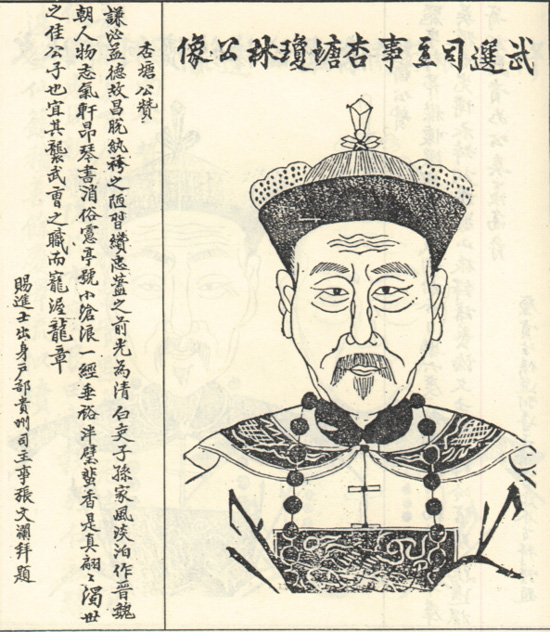 武選司主事杏塘瓊林公像
杏塘公贊
謙必益德故昌脫紈袴之陋習纘忠藎之前光為清白吏子孫家風淡泊作晉魏
朝人物志氣軒昂琴書消俗慮亭號小滄浪一經垂裕泮璧蜚香是真翩〻濁世
之佳公子也宜其襲武曹之職而寵渥龍章
賜進士出身戶部貴州司主事張文瀾拜題